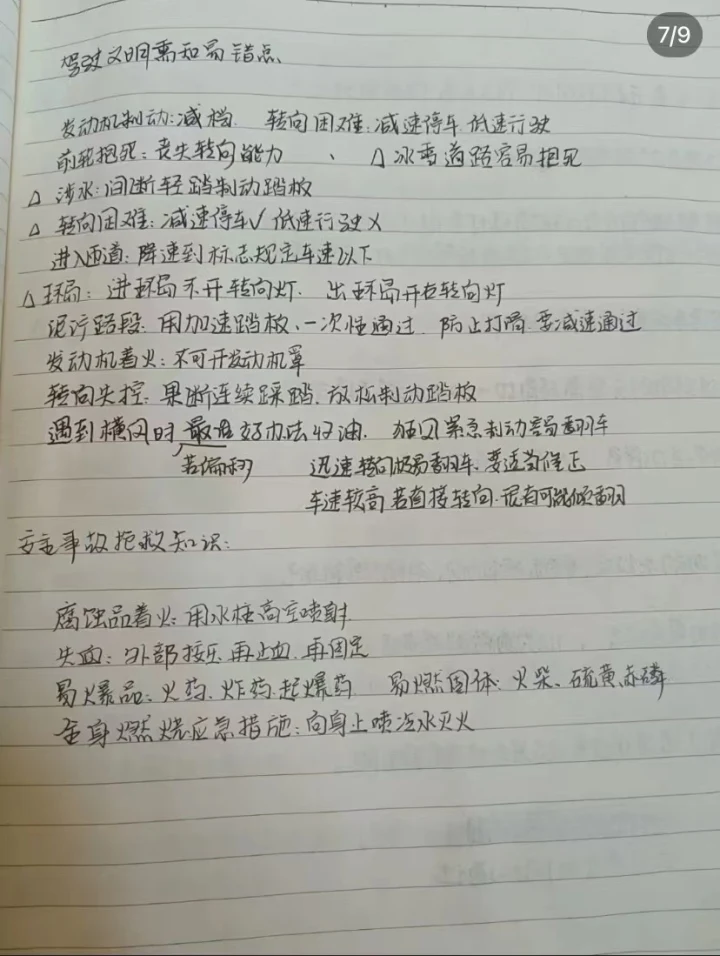 7/9
驾驶文明需知易错点
发动机制动:减档. 转向困难:减速停车 低速行驶
前轮抱死:丧失转向能力 、 △冰雪道路容易抱死
△ 涉水:间断轻踏制动踏板
△ 转向困难:减速停车√ 低速行驶×
进入匝道:降速到标志规定车速以下
△ 环岛:进环岛不开转向灯. 出环岛开右转向灯
泥泞路段:用加速踏板、一次性通过. 防止打滑.要减速通过
发动机着火:不可开发动机罩
转向失控:果断连续踩踏.放松制动踏板
遇到横风时 最 好办法收油. 紧急制动 易翻车
若偏移 迅速转向 易翻车.要适当修正
车速较高若直接转向.很有可能倾翻
事故抢救知识:
腐蚀品着火:用水柱高空喷射
失血:外部按压.再止血.再固定
易爆品:火药.炸药.起爆药 易燃固体:火柴、硫黄赤磷
全身燃烧应急措施:向身上喷冷水灭火